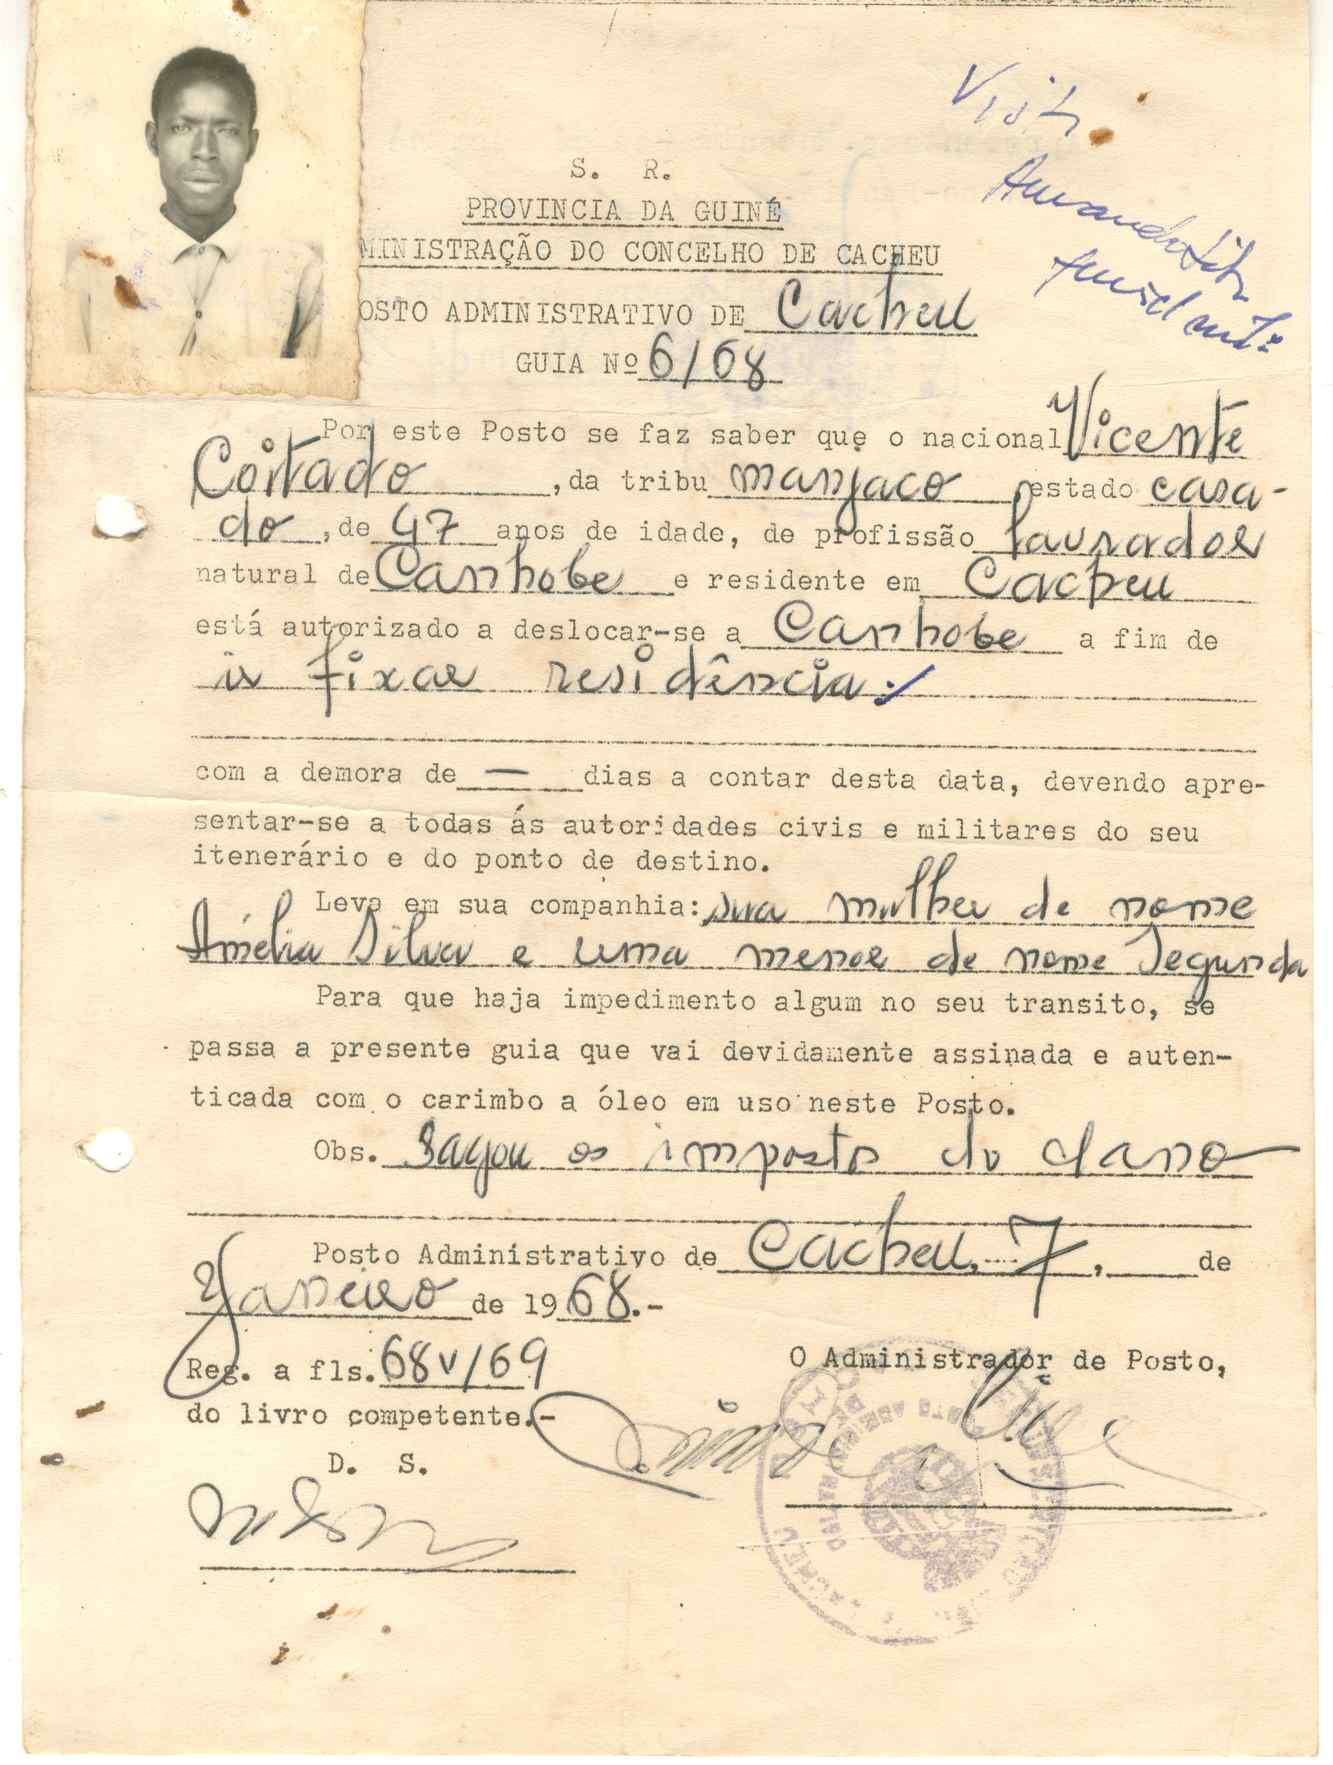 S. R.
PROVINCIA DA GUINÉ
MINISTRAÇÃO DO CONCELHO DE CACHEU
OSTO ADMINISTRATIVO DE Cacheu
GUIA Nº 6/68
Por este Posto se faz saber que o nacional Vicente
Coitado, da tribu manjaco estado casa-
do, de 47 anos de idade, de profissão lavrador
natural de Canhobe e residente em Cacheu
está autorizado a deslocar-se a Canhobe a fim de
ir fixar residência.
com a demora de — dias a contar desta data, devendo apre-
sentar-se a todas ás autoridades civis e militares do seu
itenerário e do ponto de destino.
Leva em sua companhia: sua mulher de nome
Amélia Silva e uma menor de nome Segunda
Para que haja impedimento algum no seu transito, se
passa a presente guia que vai devidamente assinada e auten-
ticada com o carimbo a óleo em uso neste Posto.
Obs. Pagou os imposto do dano
Posto Administrativo de Cacheu, 7, de
Janeiro de 1968.-
Reg. a fls. 68v/69
do livro competente.-
O Administrador de Posto,
D. S.